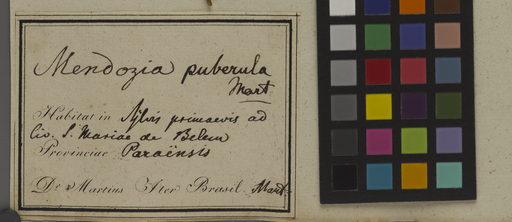 Mendozia puberula
Mart
Habitat in Sylvis primaevis ad
S. Mariae de Belem
Provinciae Paraënsis
De Martius Iter Brasil. Mart.